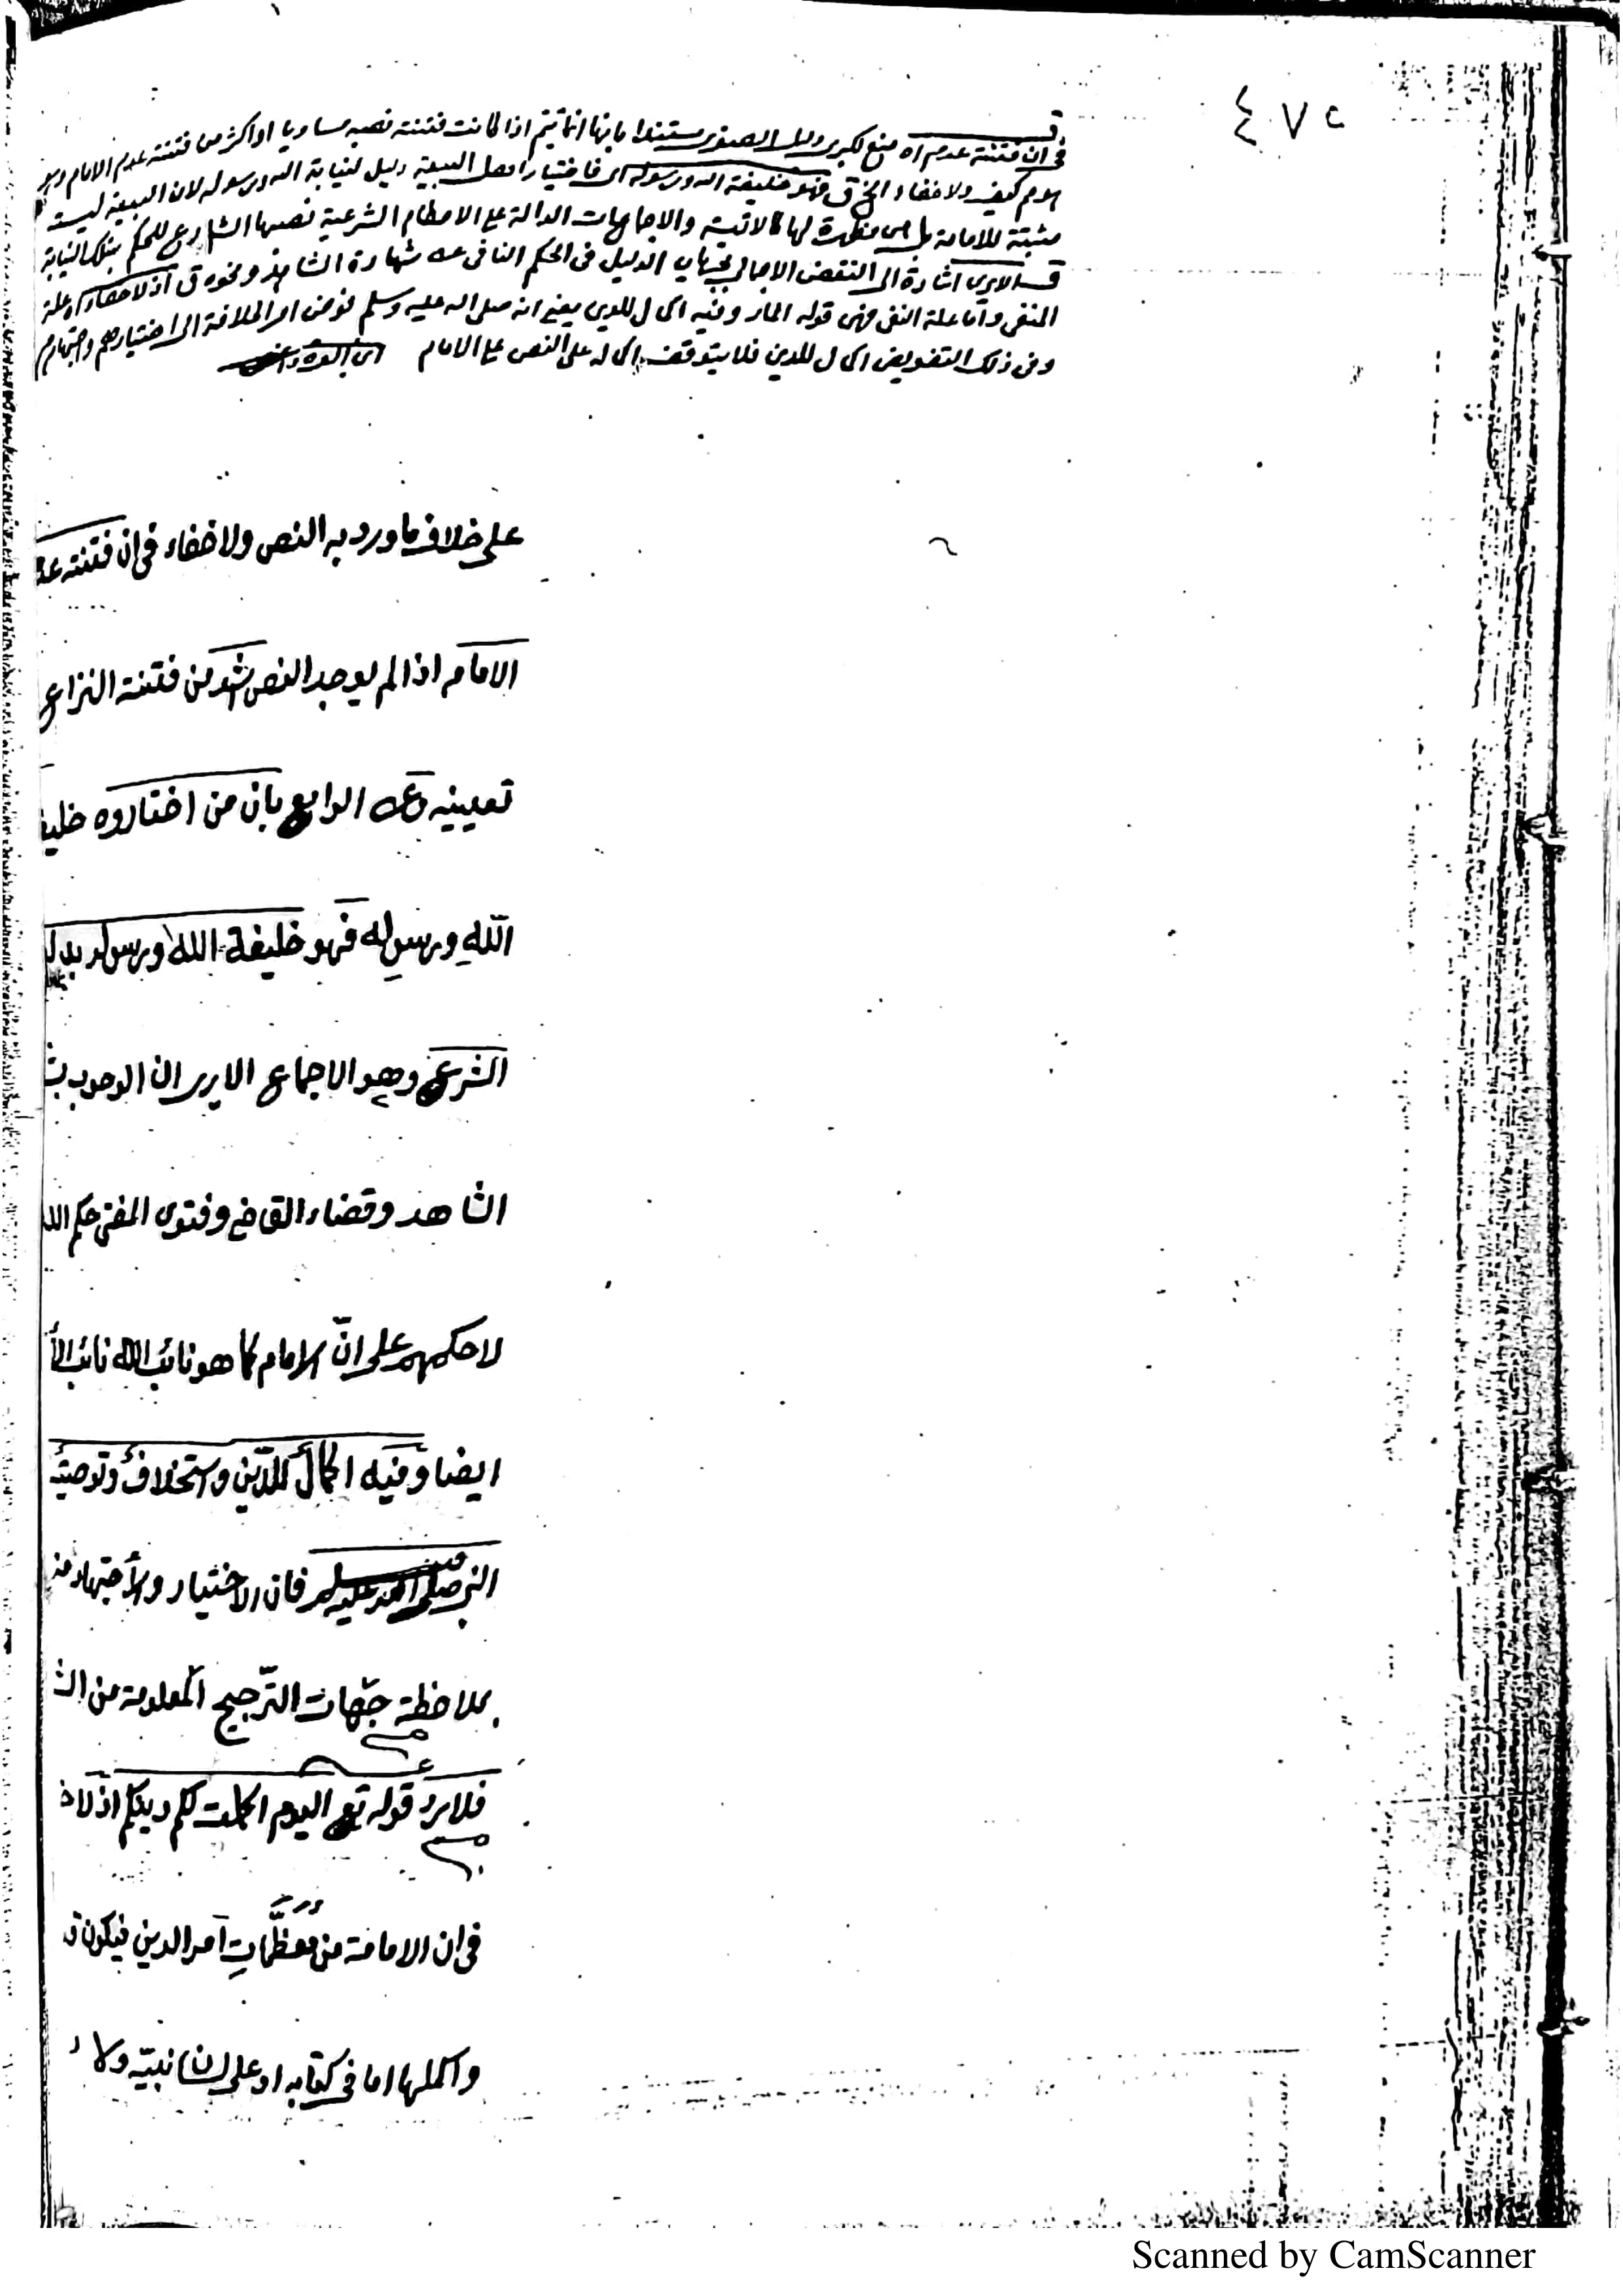 ٤٧٥
في ان فتنة عدم اه منع لكبرى دليل الصغرى مستندا بانها انما تتم اذا كانت فتنة نصبه مساويا او اكثر من فتنة عدم الامام
كيف ولا خفاء الخ ق فهو خليفة الله ورسوله اى فاختيار اهل البيعة دليل لنيابة الله ورسوله لان البيعة ليست
مثبتة للامامة بل هى مظهرة لها كالاقيسة والاجماعات الدالة على الاحكام الشرعية نصبها الشارع للحكم بتلك النيابة
ق الا يرى اشارة الى النقض الاجمالى بجريان الدليل فى الحكم النافى عنه شهادة الشاهد ونحوه ق اذ لا خفاء اه علة
المنفى واما علة النفى فهى قوله المار وفيه اكمال للدين يعنى انه صلى الله عليه وسلم فوض امر الخلافة الى اختيارهم واجتهادهم
وفى ذلك التفويض اكمال للدين فلا يتوقف اكماله على النص على الامام
على خلاف ما ورد به النص ولا خفاء فى ان فتنة عد
الامام اذا لم يوجد النص اشد من فتنة النزاع
تعيينه وعن الرابع بان من اختاروه خليفـ
الله ورسوله فهو خليفة الله ورسوله بدل
الشرعى وهو الاجماع الا يرى ان الوجوب بشـ
الشاهد وقضاء القاضى وفتوى المفتى حكم الله
لا حكمهم على انّ الامام كما هو نائب الله نائب الأ
ايضا وفيه اكمال للدين واستخلاف وتوصية
النبى صلى الله عليه وسلم فان الاختيار والاجتهاد منـ
بملاحظة جهات الترجيح المعلومة من الشـ
فلا يرد قوله تع اليوم اكملت لكم دينكم اذ لا خـ
فى ان الامامة من معظّمات امر الدين فيكون قـ
واكملها اما فى كتابه او على لسان نبيّه ولا
Scanned by CamScanner